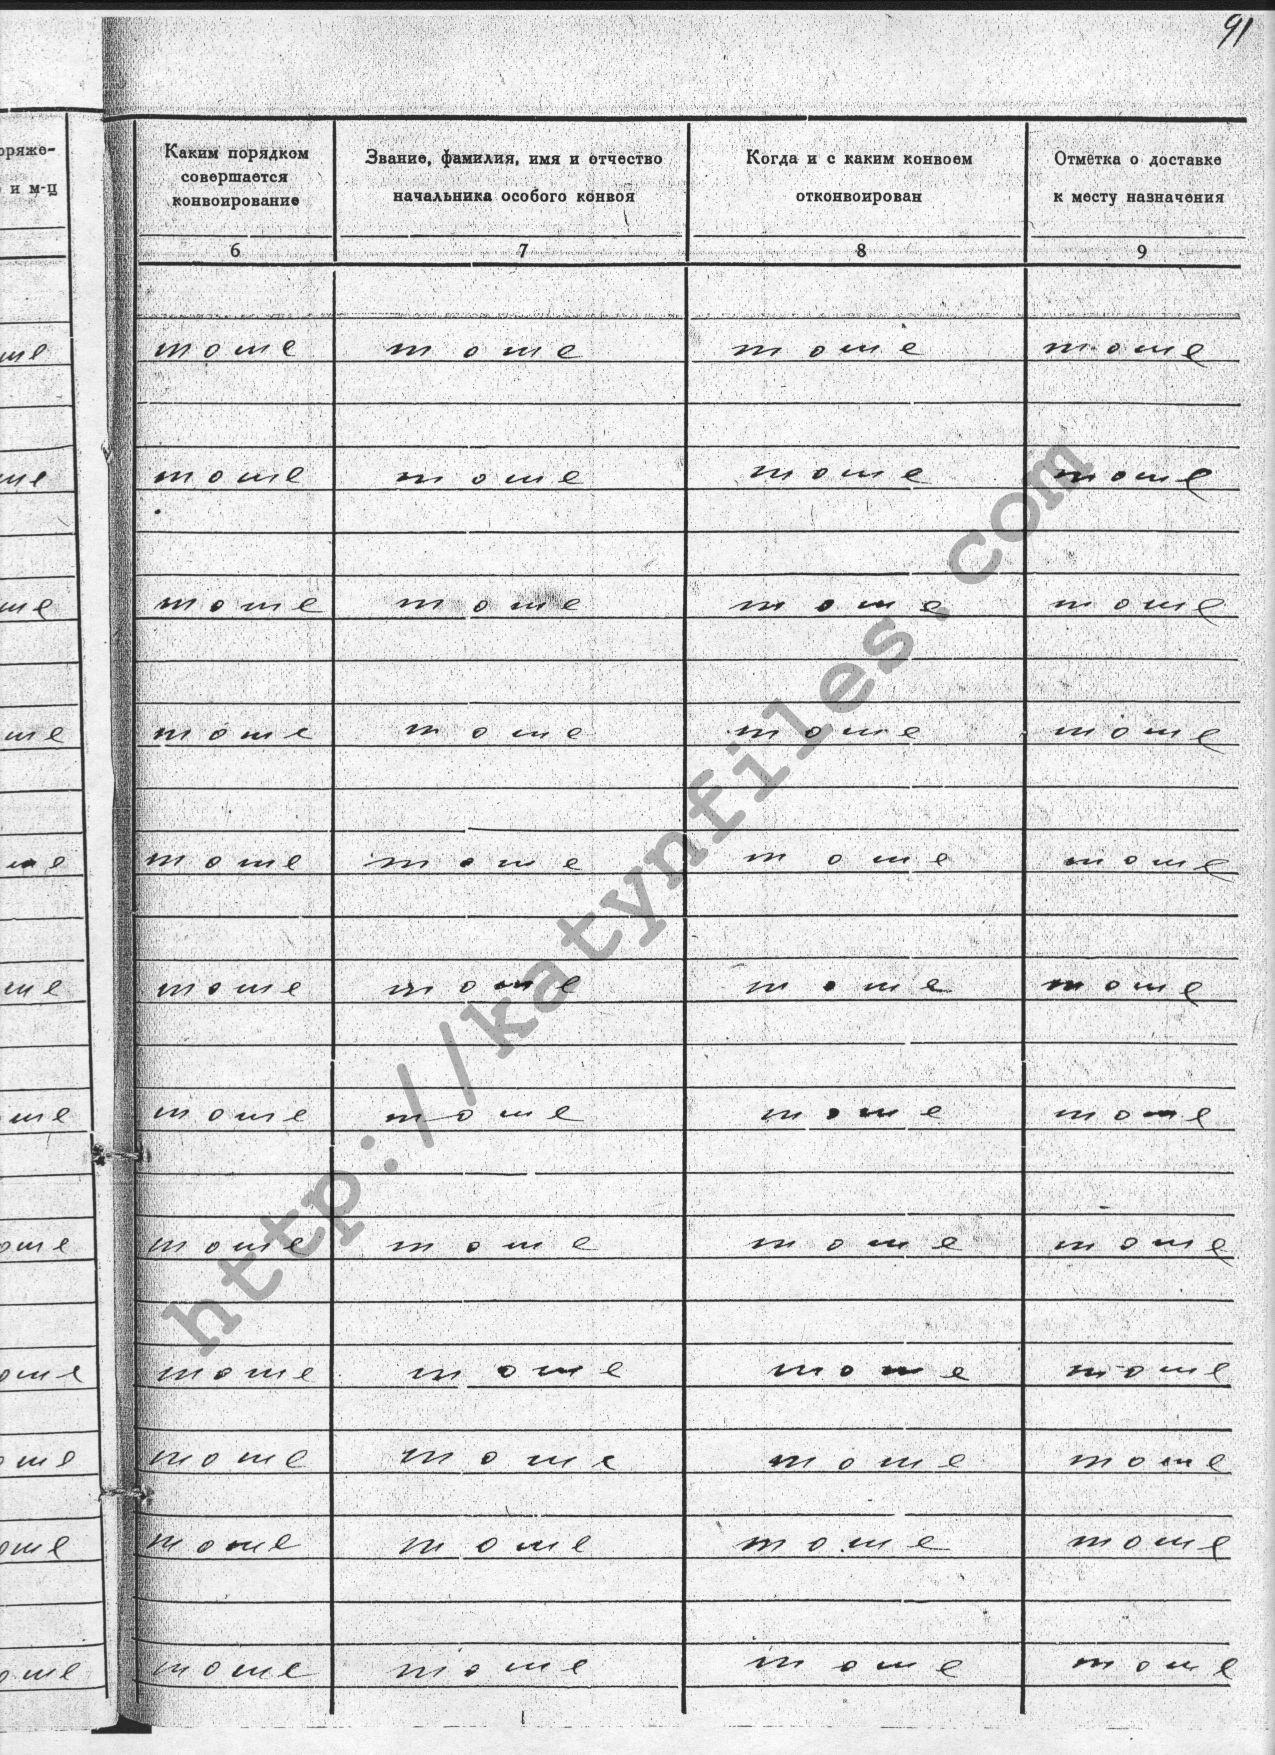 91
оряже-
и м-ц
Каким порядком
совершается
конвоирование
Звание, фамилия, имя и отчество
начальника особого конвоя
Когда и с каким конвоем
отконвоирован
Отметка о доставке
к месту назначения
6 7 8 9
оше тоже тоже тоже тоже
тоже тоже тоже тоже
тоже тоже тоже тоже
тоже тоже тоже тоже
тоже тоже тоже тоже
тоже тоже тоже тоже
тоже тоже тоже тоже
тоже тоже тоже тоже
тоже тоже тоже тоже
тоже тоже тоже тоже
тоже тоже тоже тоже
тоже тоже тоже тоже
http://katynfiles.com